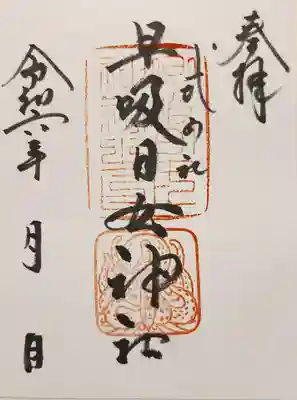 奉拝
式内社
早吸日女神社
令和六年 月 日